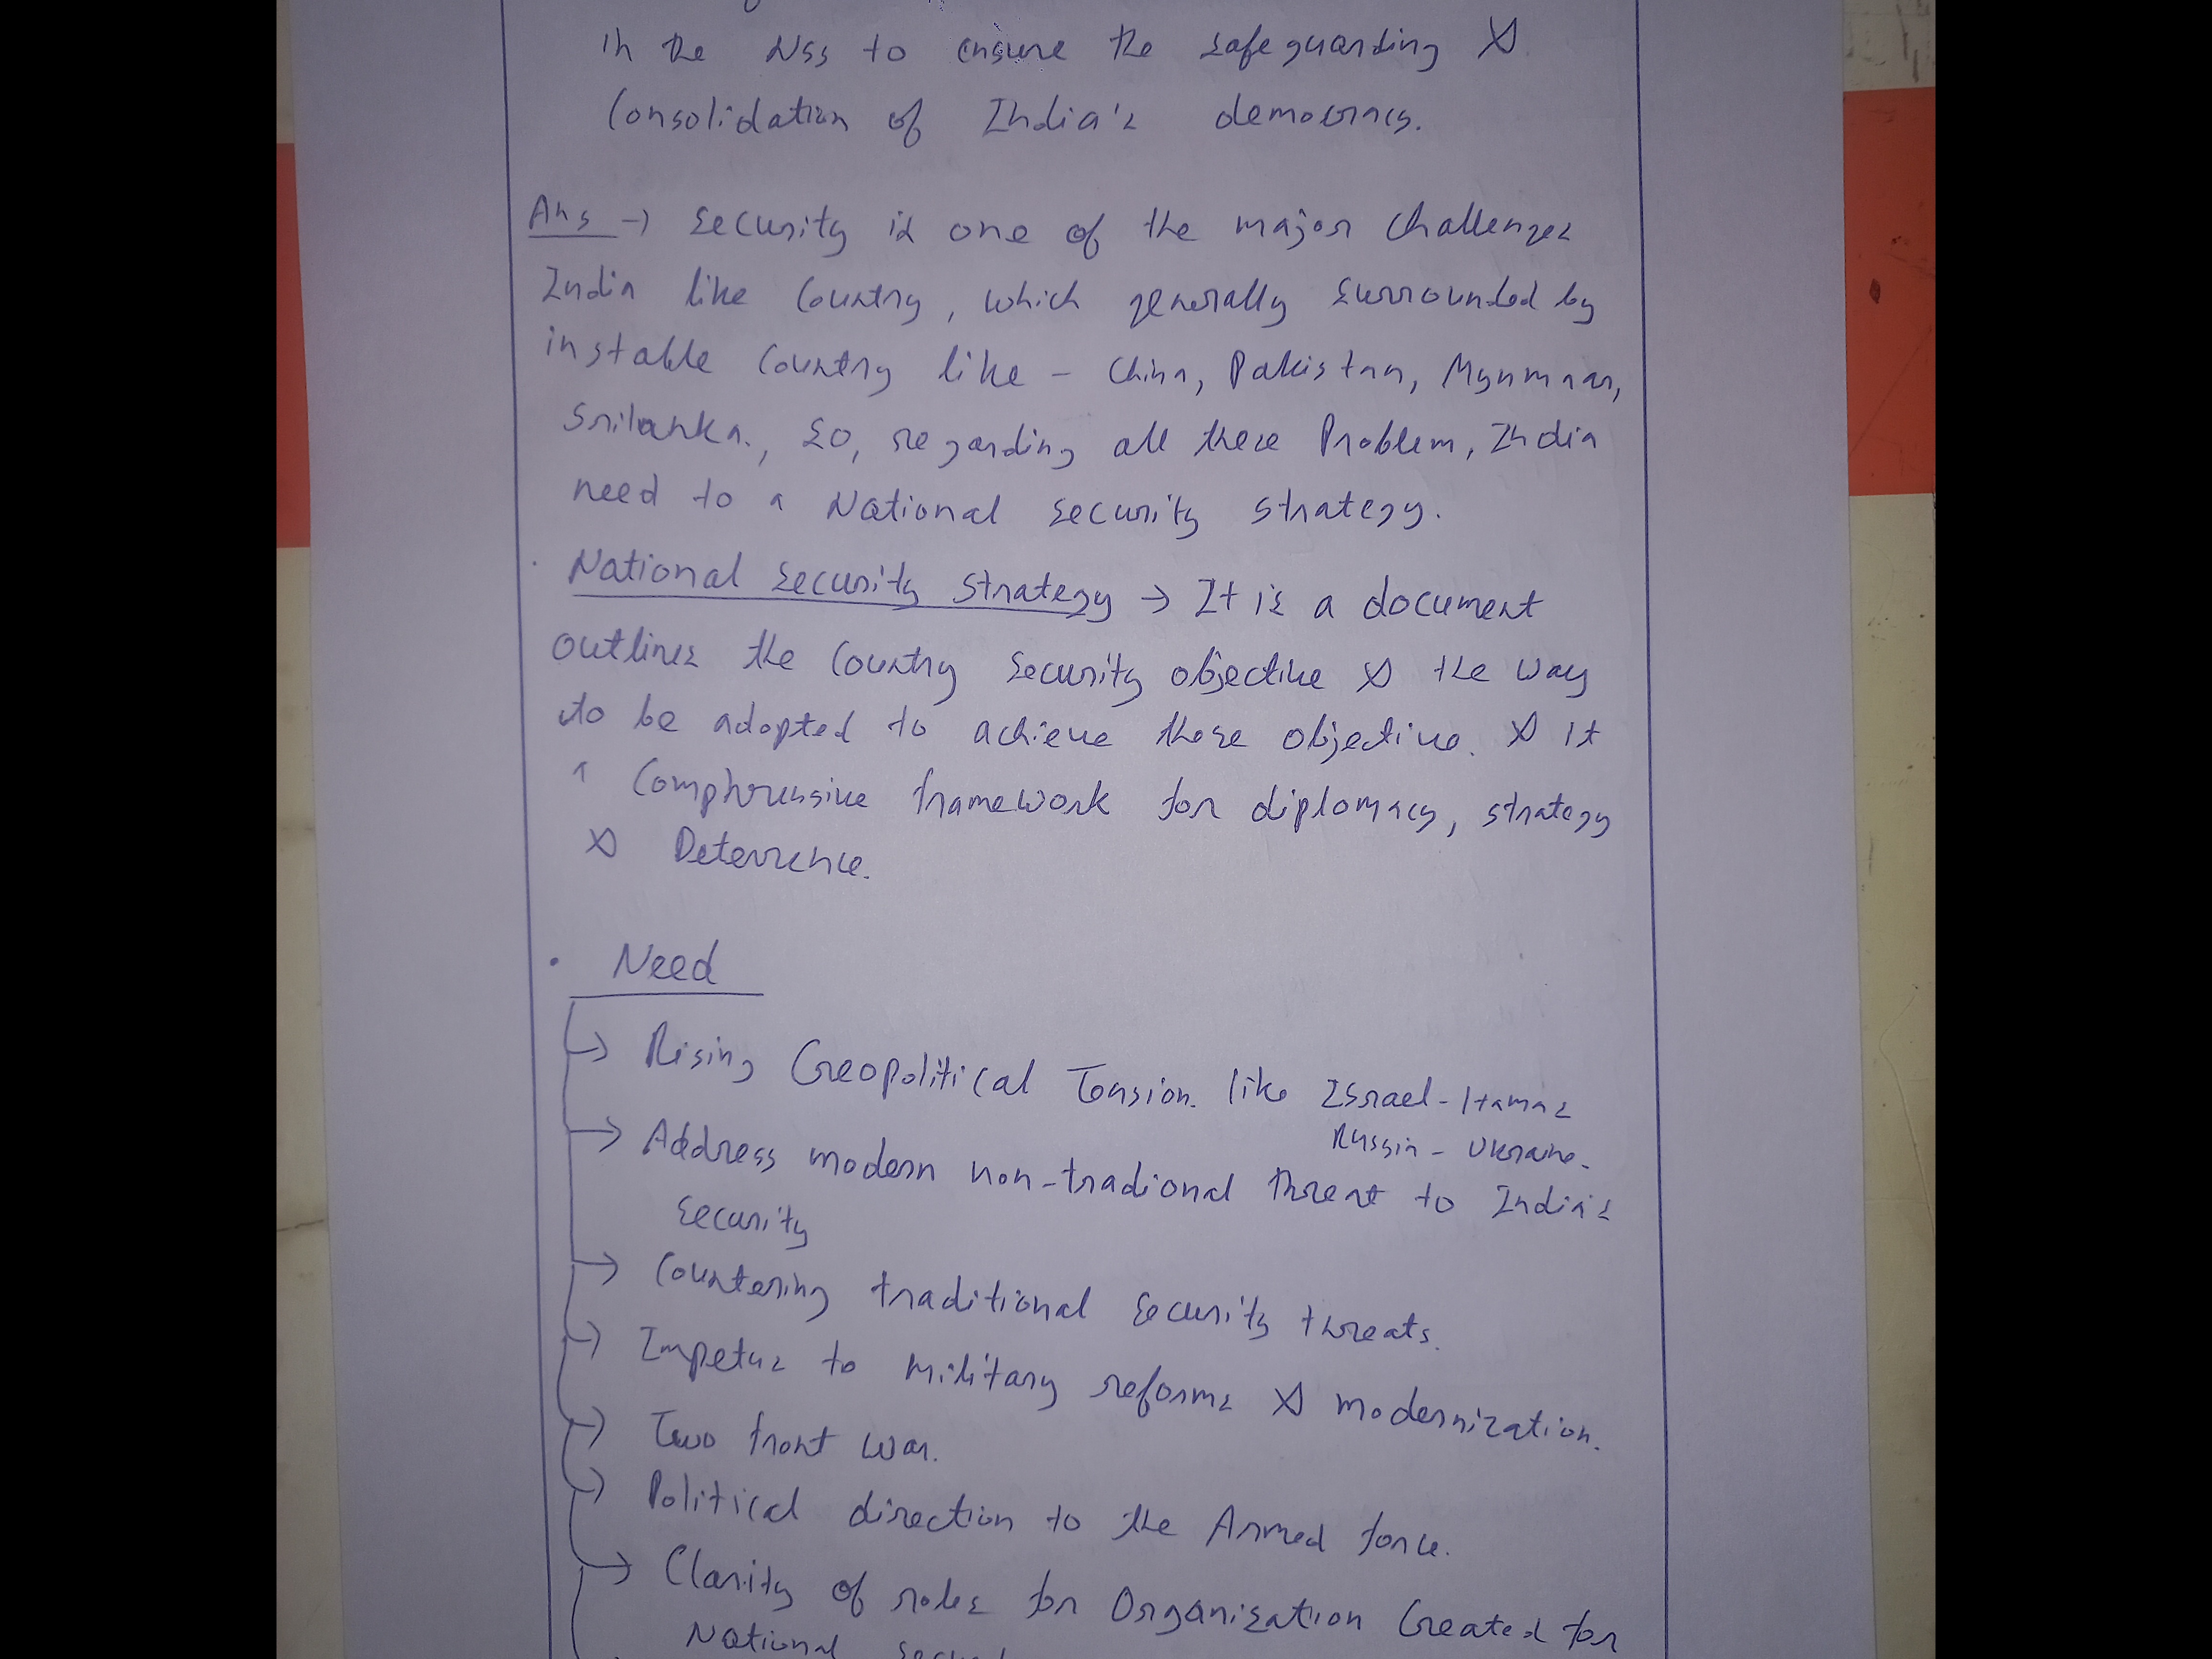 in the NSS to ensure the safeguarding &
Consolidation of India's democracy.
Ans → Security is one of the major challenges
India like Country, which generally surrounded by
instable Country like - China, Pakistan, Mynmaar,
Srilanka., so, regarding all these Problem, India
need to a National security strategy.
National security strategy → It is a document
outlines the Country security objective & the way
to be adopted to achieve those objective. & it
a Comphrensive framework for diplomacy, strategy
& Deterrence.
• Need
→ Rising Geopolitical Tension. like Israel-Hamas
Russia - Ukraine.
→ Address modern non-tradional threat to India's
security
→ Countering traditional security threats.
→ Impetus to Military reforms & modernization.
→ Two front war.
→ Political direction to the Armed force.
→ Clarity of roles for Organisation Created for
National